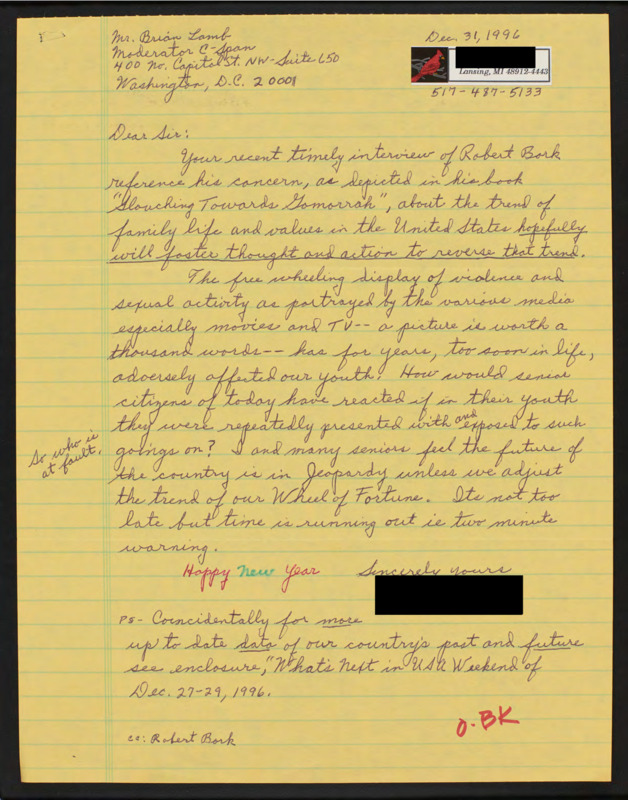 Mr. Brian Lamb
Moderator C-Span
400 No. Capitol St. NW - Suite 650
Washington, D.C. 20001
Dec. 31, 1996
Lansing, MI 48912-4443
517-487-5133
Dear Sir:
Your recent timely interview of Robert Bork
reference his concern, as depicted in his book
"Slouching Towards Gomorrah", about the trend of
family life and values in the United States hopefully
will foster thought and action to reverse that trend.
The free wheeling display of violence and
sexual activity as portrayed by the various media
especially movies and TV-- a picture is worth a
thousand words-- has for years, too soon in life,
adversely affected our youth. How would senior
citizens of today have reacted if in their youth
they were repeatedly presented with and exposed to such
goings on? I and many seniors feel the future of
the country is in Jeopardy unless we adjust
the trend of our Wheel of Fortune. Its not too
late but time is running out ie two minute
warning.
So who is
at fault.
Happy New Year
Sincerely yours
PS - Coincidentally for more
up to date data of our country's past and future
see enclosure, "What's Next in USA Weekend of
Dec. 27-29, 1996.
O.BK
cc: Robert Bork